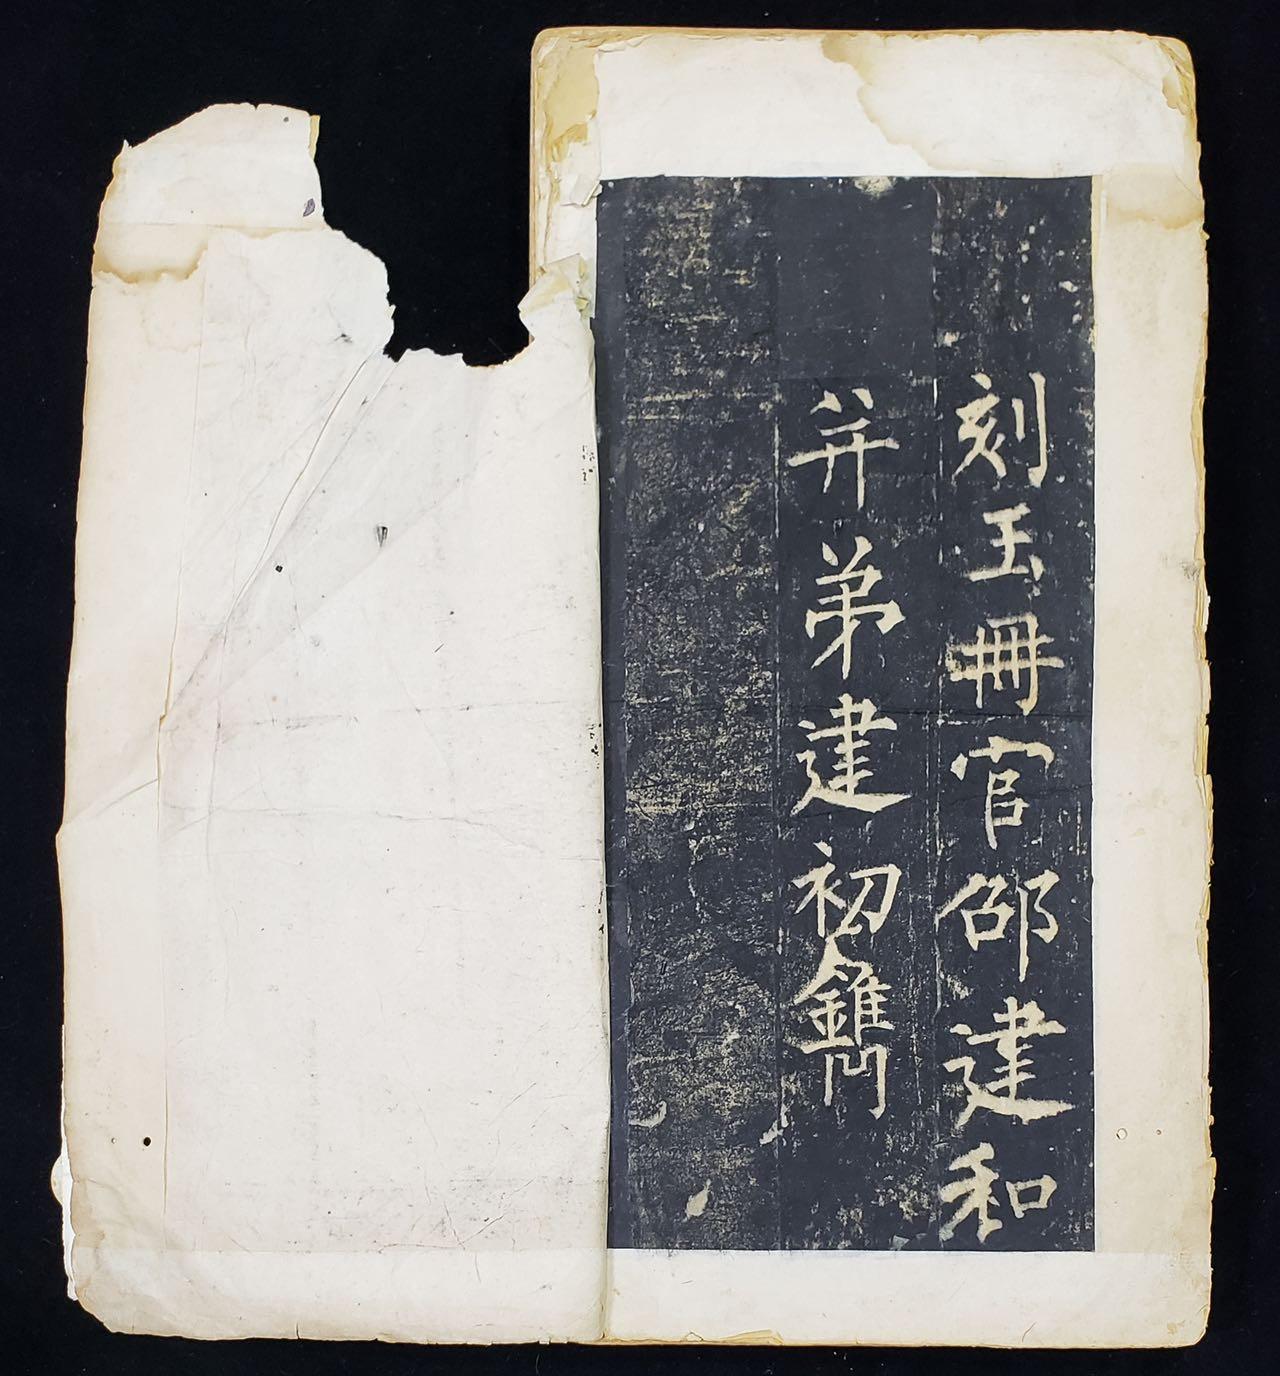 刻玉冊官邵建和
并弟建初鐫